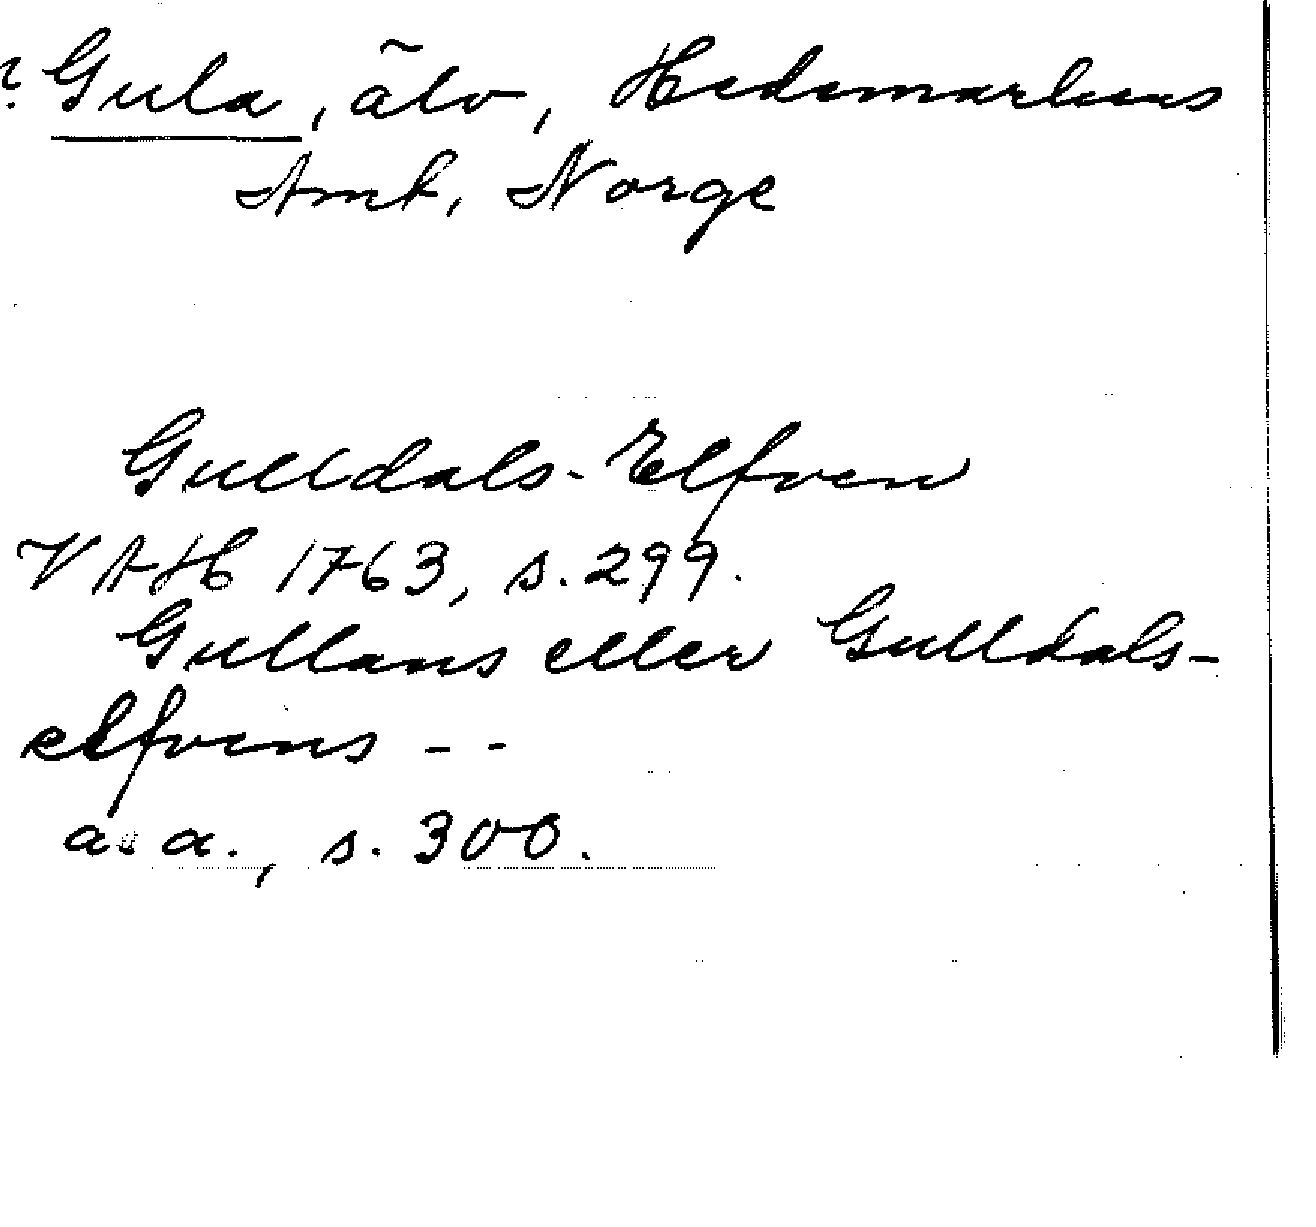 ? Gula, älv, Hedemarkens
Amt, Norge
Gulldals-Elfven
VAH 1763, s. 299.
Gullans eller Gulldals-
elfvens - -
a. a., s. 300.